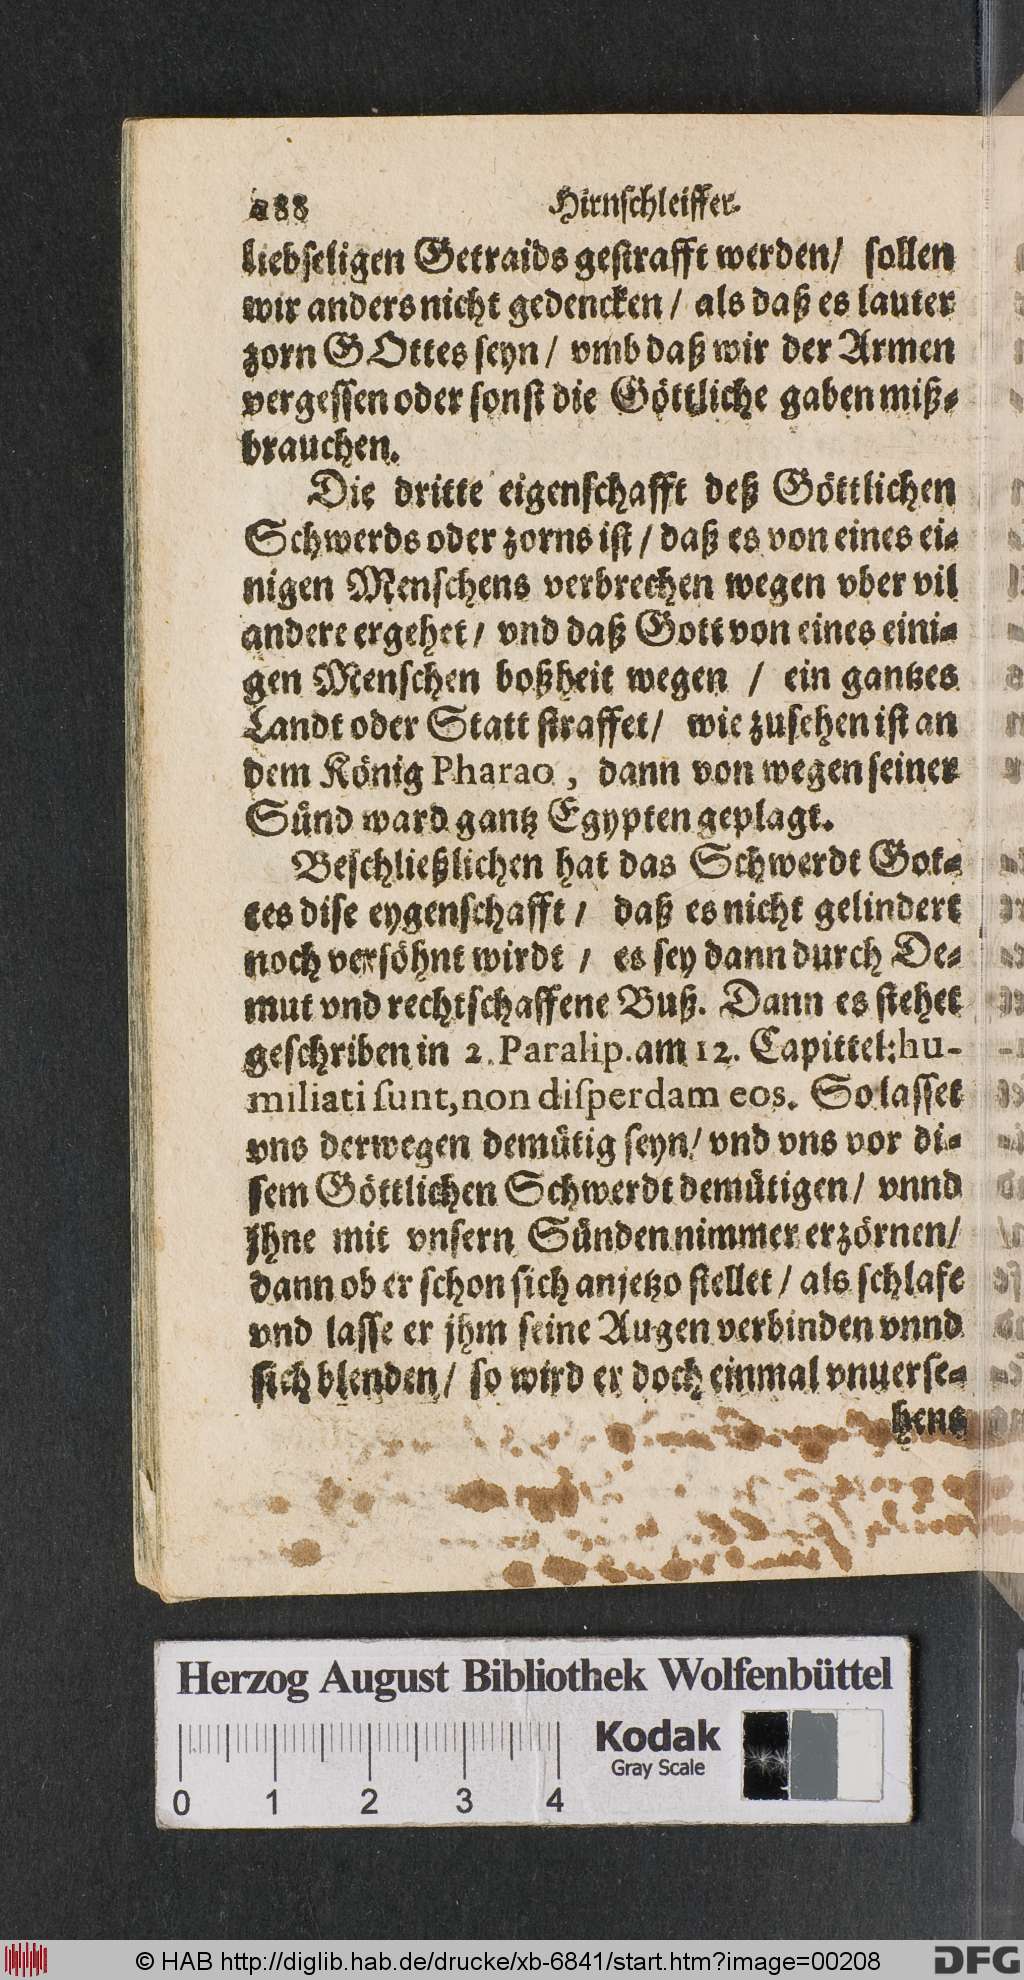 188 Hirnschleiffer.
liebseligen Getraids gestrafft werden/ sollen
wir anders nicht gedencken / als daß es lauter
zorn GOttes seyn / vmb daß wir der Armen
vergessen oder sonst die Göttliche gaben miß-
brauchen.
Die dritte eigenschafft deß Göttlichen
Schwerds oder zorns ist / daß es von eines ei-
nigen Menschens verbrechen wegen vber vil
andere ergehet / vnd daß Gott von eines eini-
gen Menschen boßheit wegen / ein gantzes
Landt oder Statt straffet/ wie zusehen ist an
dem König Pharao , dann von wegen seiner
Sünd ward gantz Egypten geplagt.
Beschließlichen hat das Schwerdt Got-
tes dise eygenschafft / daß es nicht gelindert
noch versöhnt wirdt / es sey dann durch De-
mut vnd rechtschaffene Buß. Dann es stehet
geschriben in 2. Paralip. am 12. Capittel: hu-
miliati sunt, non disperdam eos. So lasset
vns derwegen demütig seyn/ vnd vns vor di-
sem Göttlichen Schwerdt demütigen/ vnnd
Jhne mit vnsern Sünden nimmer erzörnen/
dann ob er schon sich anjetzo stellet / als schlafe
vnd lasse er jhm seine Augen verbinden vnnd
sich blenden/ so wird er doch einmal vnuerse-
hens
Herzog August Bibliothek Wolfenbüttel
Kodak
Gray Scale
0 1 2 3 4
© HAB http://diglib.hab.de/drucke/xb-6841/start.htm?image=00208
DFG